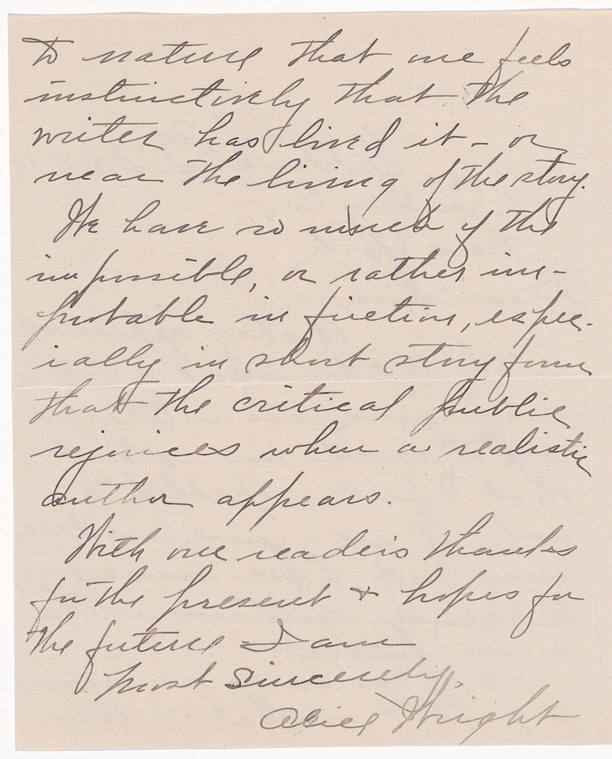 to nature that one feels
instinctively that the
writer has lived it - or
near the living of the story.
We have so much of the
impossible, or rather im-
probable in fiction, espec-
ially in short story form
that the critical public
rejoices when a realistic
author appears.
With one readers thanks
for the present + hopes for
the future I am
most sincerely,
Alice Wright